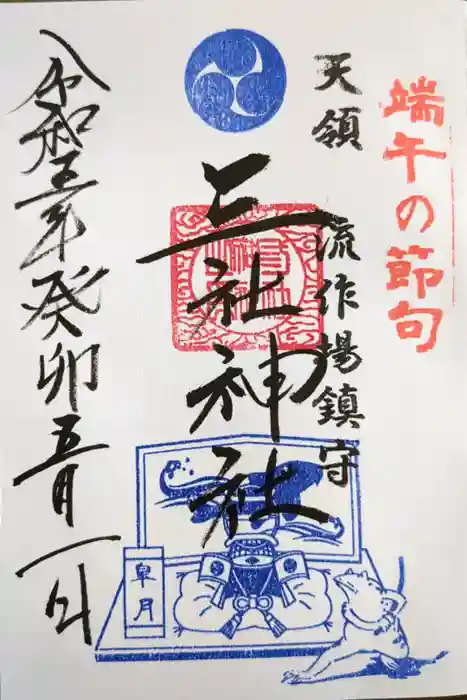 端午の節句
天領 流作場鎮守
三社神社
令和五年癸卯五月一日
皐月